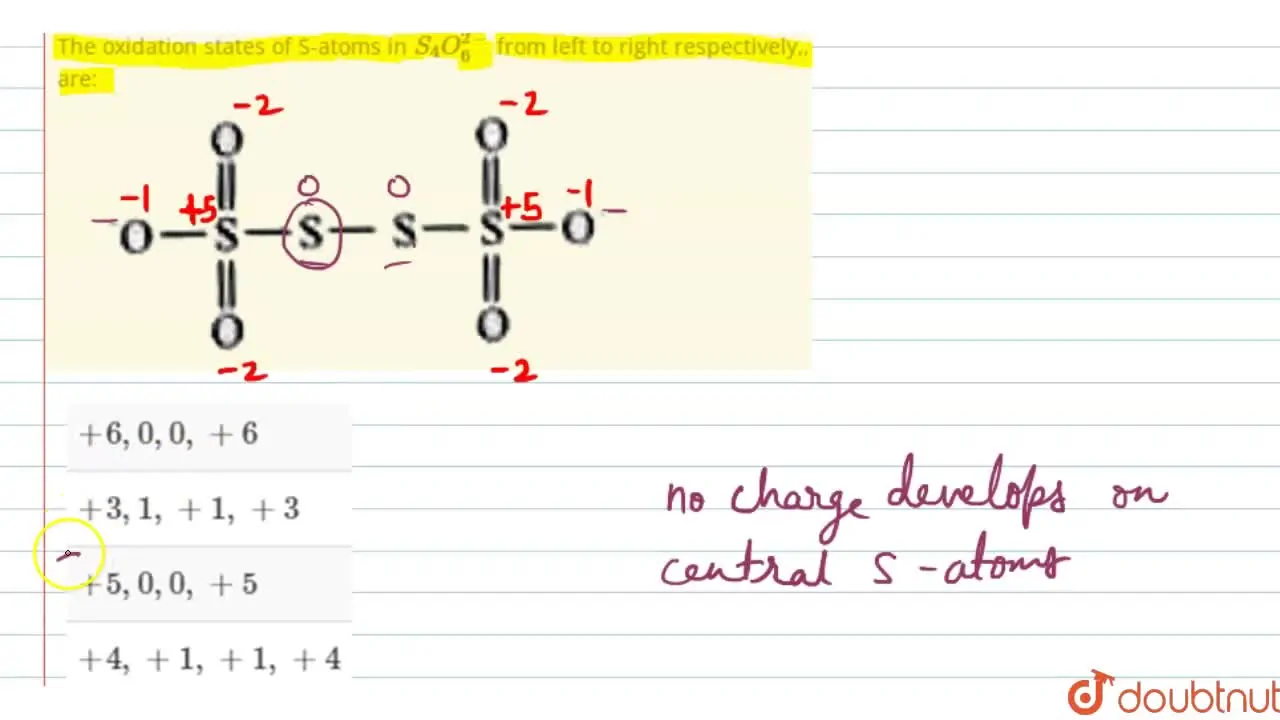 The oxidation states of S-atoms in S₄O₆²⁻ from left to right respectively,.
are:
-2 -2
O O
0 0
-1 +5 +5 -1
− O — S — S — S — S — O −
O O
-2 -2
+6, 0, 0, +6
+3, 1, +1, +3
+5, 0, 0, +5
+4, +1, +1, +4
no charge develops on
central S-atoms
doubtnut